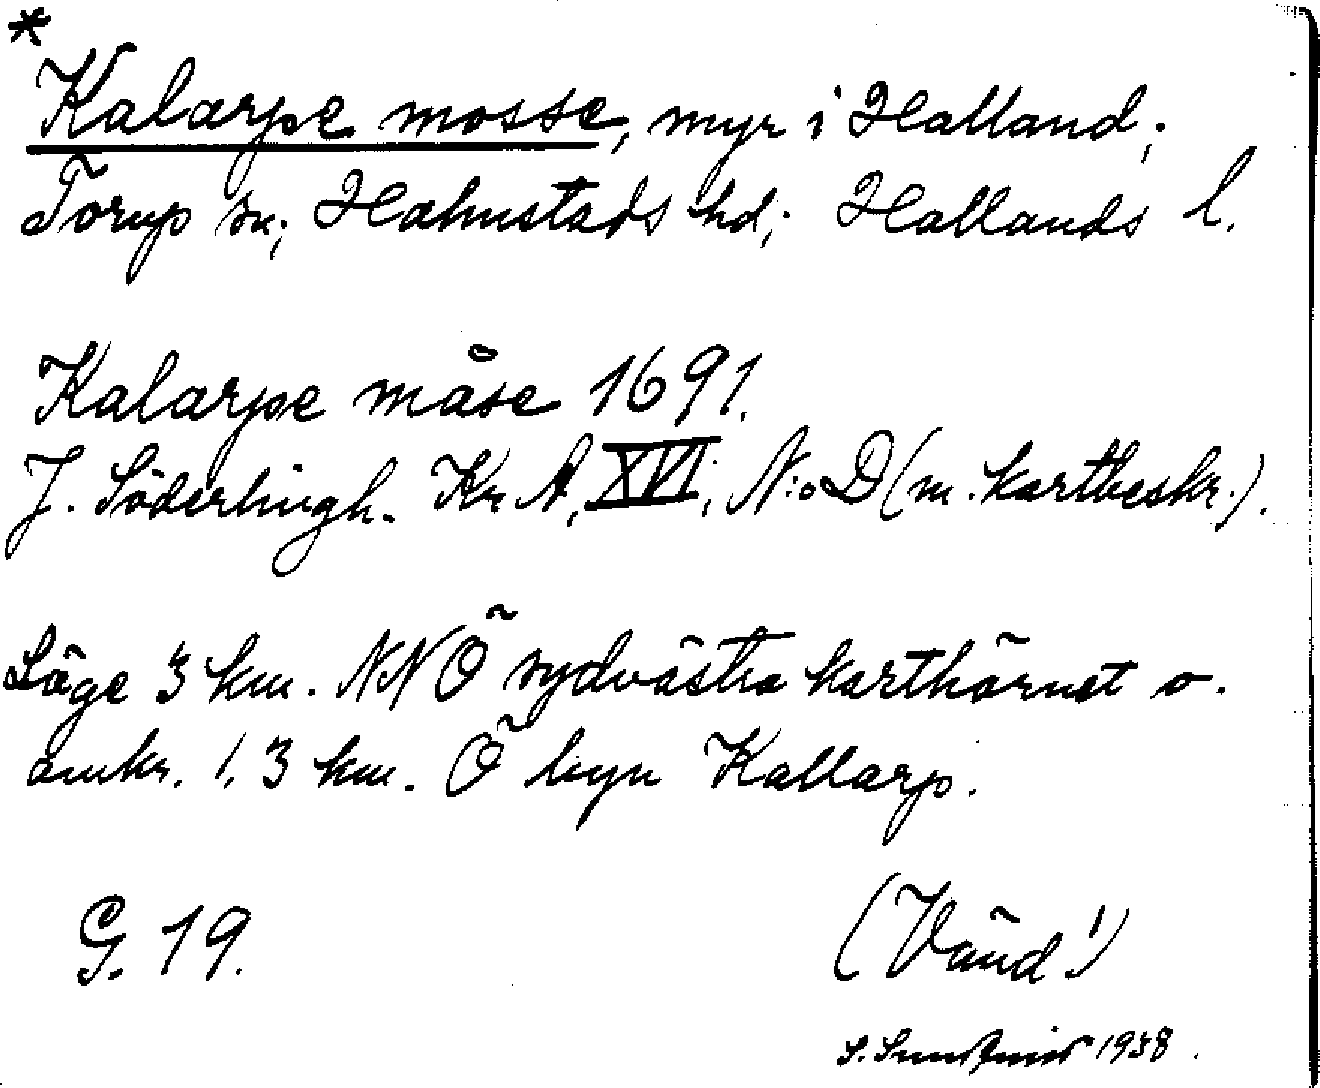 *
Kalarpe mosse, myr i Halland;
Torup sn; Halmstads hd; Hallands l.
Kalarpe måse 1691.
J. Söderlingh. Kr A, XVI, N:o D (m. kartbeskr.).
Läge 3 km. NNÖ sydvästra karthörnet o.
omkr. 1,3 km. Ö byn Kallarp.
G. 19.
(Vänd!)
S. 1938.